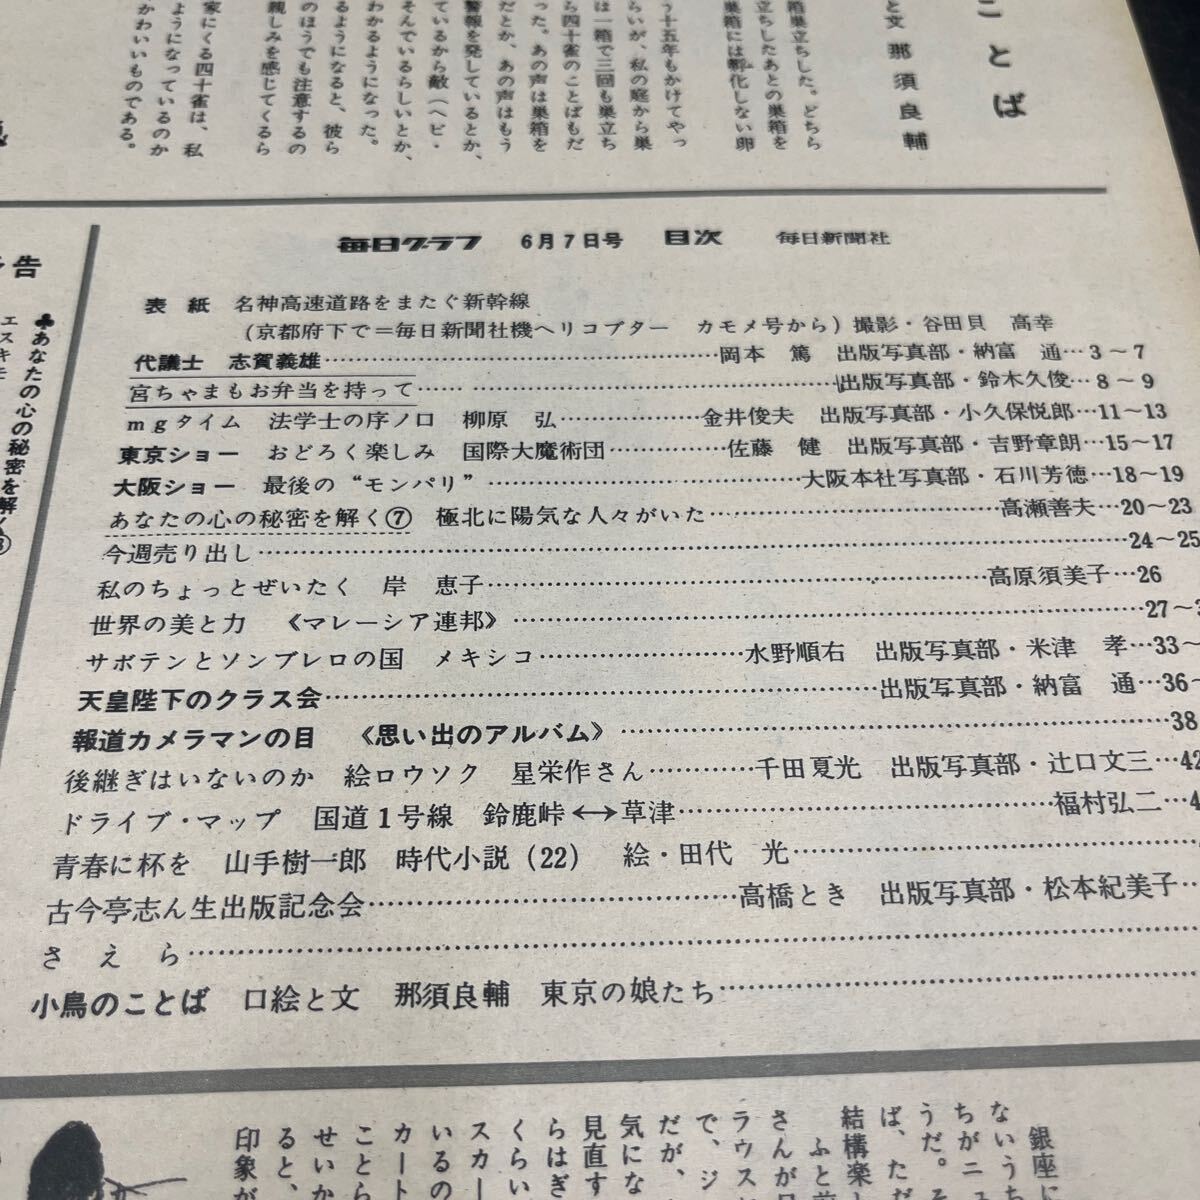 ことば
と文 那須良輔
箱巣立ちした。どちら
立ちしたあとの巣箱を
巣箱には孵化しない卵
う十五年もかけてやっ
らいが、私の庭から巣
は一箱で三回も巣立ち
ら四十雀のことばもだ
った。あの声は巣箱を
だとか、あの声はもう
警報を発しているとか、
ているから敵(ヘビ・
そんでいるらしいとか、
わかるようになった。
るようになると、彼ら
のほうでも注意するの
親しみを感じてくるら
家にくる四十雀は、私
ようになっているのか
かわいいものである。
毎日グラフ 6月7日号 目次 毎日新聞社
表紙 名神高速道路をまたぐ新幹線
(京都府下で=毎日新聞社機ヘリコプター カモメ号から) 撮影・谷田貝 高幸
代議士 志賀義雄……岡本 篤 出版写真部・納富 通…3~7
宮ちゃまもお弁当を持って……出版写真部・鈴木久俊…8~9
mgタイム 法学士の序ノ口 柳原 弘……金井俊夫 出版写真部・小久保悦郎…11~13
東京ショー おどろく楽しみ 国際大魔術団……佐藤 健 出版写真部・吉野章朗…15~17
大阪ショー 最後の“モンパリ”……大阪本社写真部・石川芳徳…18~19
あなたの心の秘密を解く⑦ 極北に陽気な人々がいた……高瀬善夫…20~23
今週売り出し……24~25
私のちょっとぜいたく 岸 恵子……高原須美子…26
世界の美と力 《マレーシア連邦》……27~
サボテンとソンブレロの国 メキシコ……水野順右 出版写真部・米津 孝…33~
天皇陛下のクラス会……出版写真部・納富 通…36~
報道カメラマンの目 《思い出のアルバム》……38
後継ぎはいないのか 絵ロウソク 星栄作さん……千田夏光 出版写真部・辻口文三…42
ドライブ・マップ 国道1号線 鈴鹿峠↔草津……福村弘二…4
青春に杯を 山手樹一郎 時代小説(22) 絵・田代 光……
古今亭志ん生出版記念会……高橋とき 出版写真部・松本紀美子…
さえら……
小鳥のことば 口絵と文 那須良輔 東京の娘たち……
告
♣あなたの心の秘密を解く⑧
エスキモ
銀座に
ないうち
ちがニュ
うだ。そ
ば、ただ
結構楽し
ふと前
さんが日
ラウス
で、ジ
だが、
気にな
見直す
らはぎ
くらい
スカー
いるの
カート
ことら
せいか
ると、
印象が